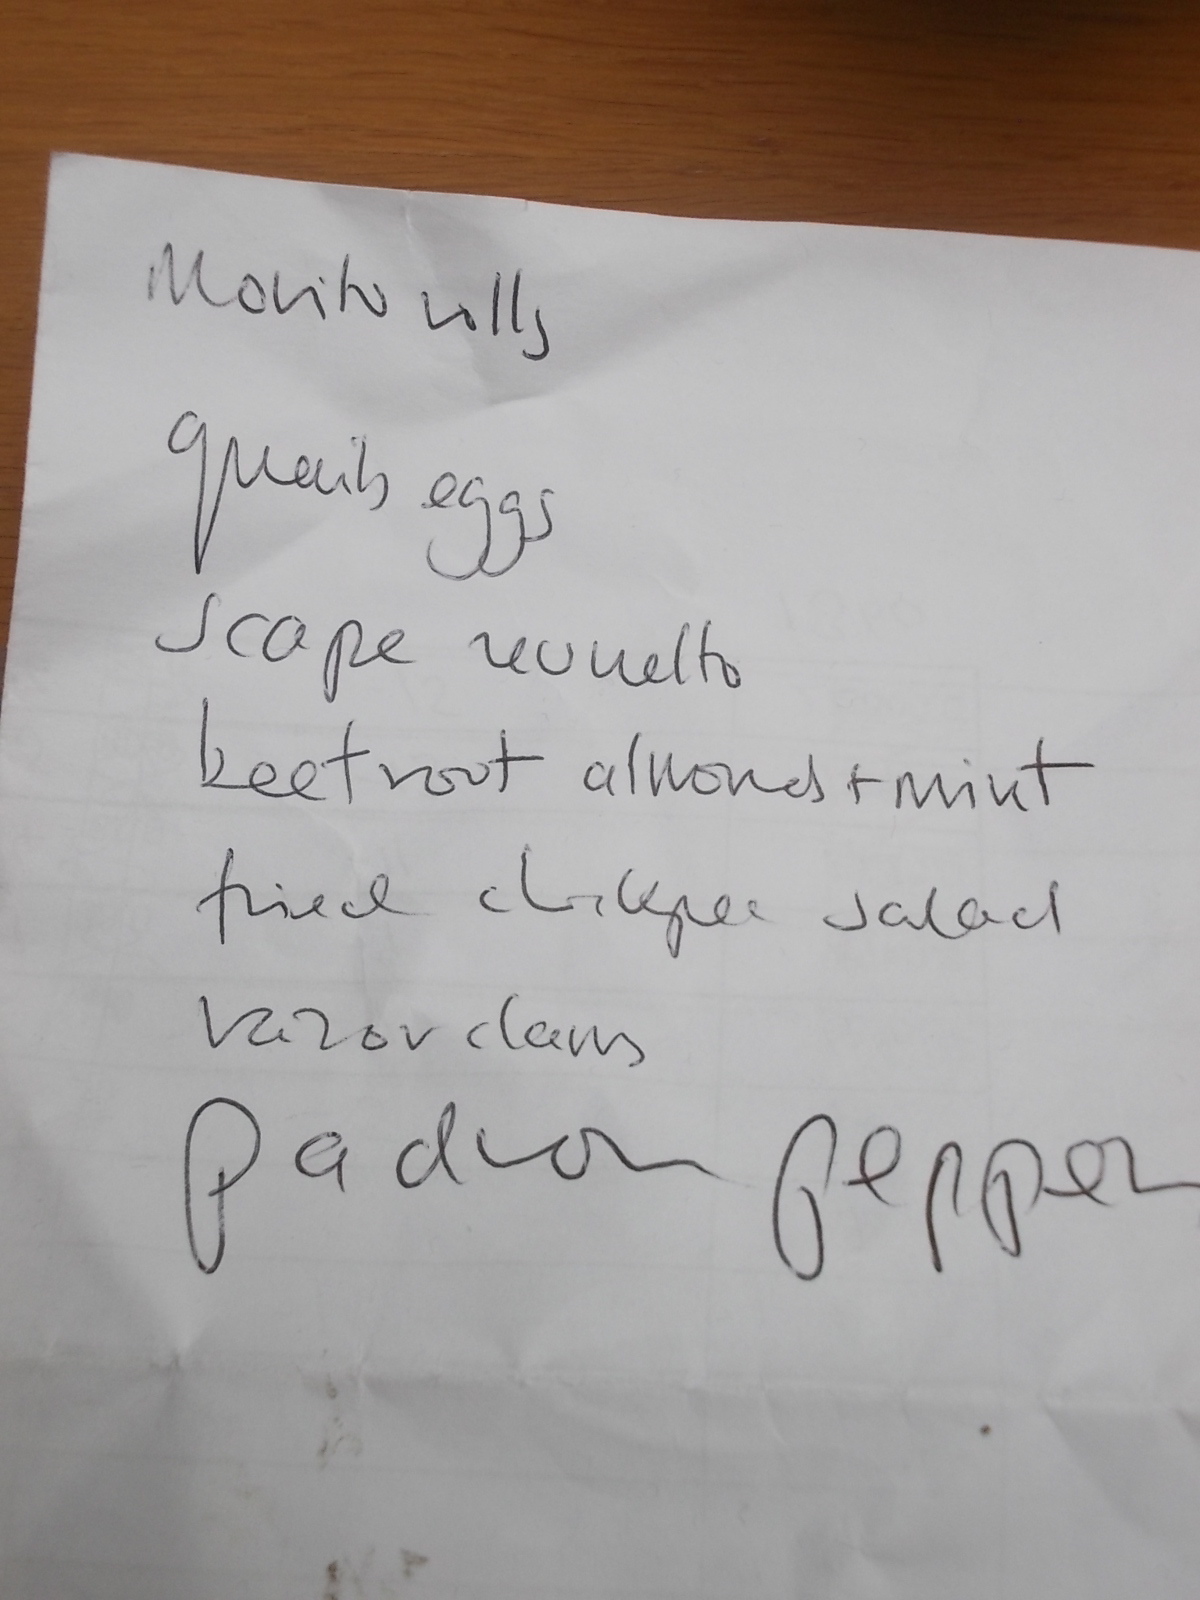 Morito rolls
quails eggs
scape revuelto
beetroot almonds + mint
fried chickpea salad
razor clams
padron pepper